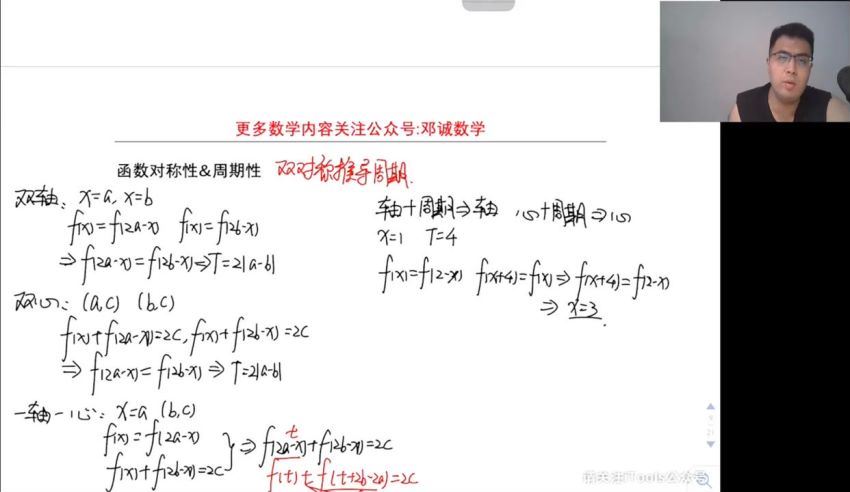 更多数学内容关注公众号:邓诚数学
函数对称性&周期性 双对称推导周期
双轴: x=a, x=b
f(x)=f(2a-x) f(x)=f(2b-x)
⇒ f(2a-x)=f(2b-x)⇒T=2|a-b|
双心: (a,c) (b,c)
f(x)+f(2a-x)=2c, f(x)+f(2b-x)=2c
⇒ f(2a-x)=f(2b-x)⇒T=2|a-b|
一轴一心: x=a (b,c)
f(x)=f(2a-x)
f(x)+f(2b-x)=2c
⇒ f(2a-x)+f(2b-x)=2c
t
f(t)+f(t+2b-2a)=2c
轴+周期⇒轴 心+周期⇒心
x=1 T=4
f(x)=f(2-x) f(x+4)=f(x)⇒f(x+4)=f(2-x)
⇒ x=3
请关注iTools公众号